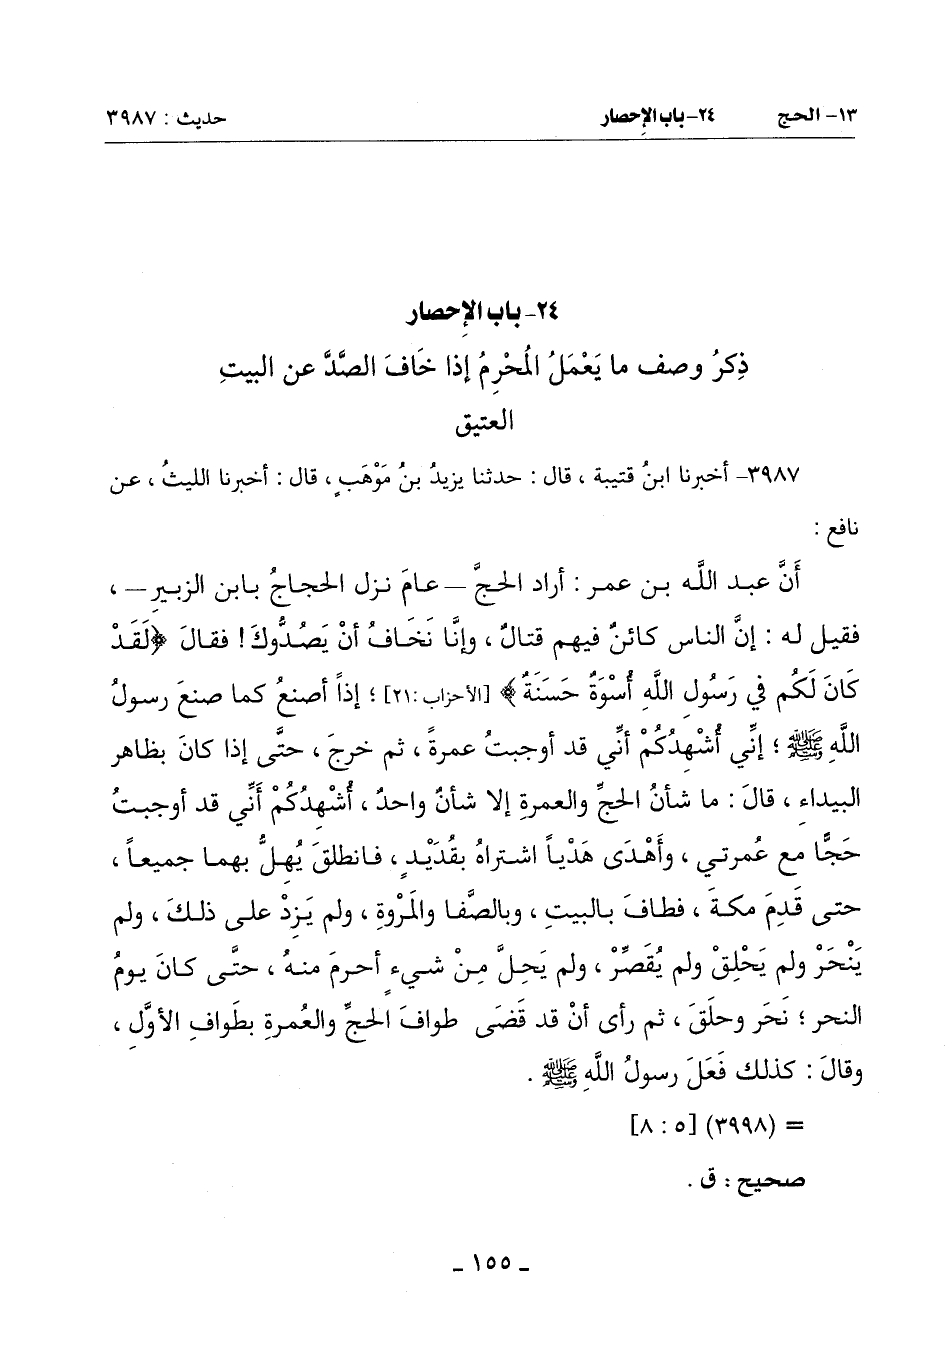 ١٣- الحج ٢٤- باب الإحصار حديث : ٣٩٨٧
٢٤- باب الإحصار
ذِكرُ وصف ما يَعْمَلُ المُحْرِمُ إذا خَافَ الصَّدَّ عن البيتِ
العتيق
٣٩٨٧- أخبرنا ابنُ قتيبة ، قال : حدثنا يزيدُ بنُ مَوْهَبٍ ، قال : أخبرنا الليثُ ، عن
نافع :
أنَّ عبد اللَّه بن عمر : أراد الحجَّ – عامَ نزل الحجاجُ بابنِ الزبير – ،
فقيل له : إنَّ الناس كائنٌ فيهم قتالٌ ، وإنَّا نَخَافُ أنْ يَصُدُّوكَ ! فقالَ ﴿لَقَدْ
كَانَ لَكُم في رَسُولِ اللَّهِ أُسْوَةٌ حَسَنَةٌ﴾ [الأحزاب :٢١] ؛ إذاً أصنعُ كما صنعَ رسولُ
اللَّهِ ﷺ ؛ إنِّي أُشْهِدُكُمْ أنِّي قد أوجبتُ عمرةً ، ثم خرجَ ، حتَّى إذا كانَ بظاهر
البيداءِ ، قالَ : ما شأنُ الحجِّ والعمرةِ إلا شأنٌ واحدٌ ، أُشْهِدُكُمْ أنِّي قد أوجبتُ
حَجًّا مع عُمرتي ، وأَهْدَى هَدْياً اشتراهُ بقُدَيْدٍ ، فانطلقَ يُهِلُّ بهما جميعاً ،
حتى قَدِمَ مكةَ ، فطافَ بالبيتِ ، وبالصَّفا والمَرْوةِ ، ولم يَزِدْ على ذلكَ ، ولم
يَنْحَرْ ولم يَحْلِقْ ولم يُقَصِّرْ ، ولم يَحِلَّ مِنْ شيءٍ أحرمَ منهُ ، حتَّى كانَ يومُ
النحر ؛ نَحَر وحلَقَ ، ثم رأى أنْ قد قَضَى طوافَ الحجِّ والعُمرةِ بطَوافِهِ الأوَّلِ ،
وقالَ : كذلك فَعَلَ رسولُ اللَّهِ ﷺ .
= (٣٩٩٨) [٥ : ٨]
صحيح : ق .
ـ ١٥٥ ـ